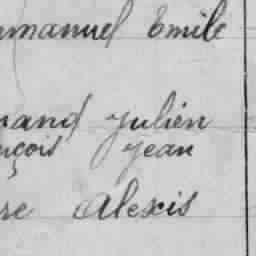 mmanuel Emile
mand Julien
nçois Jean
re Alexis